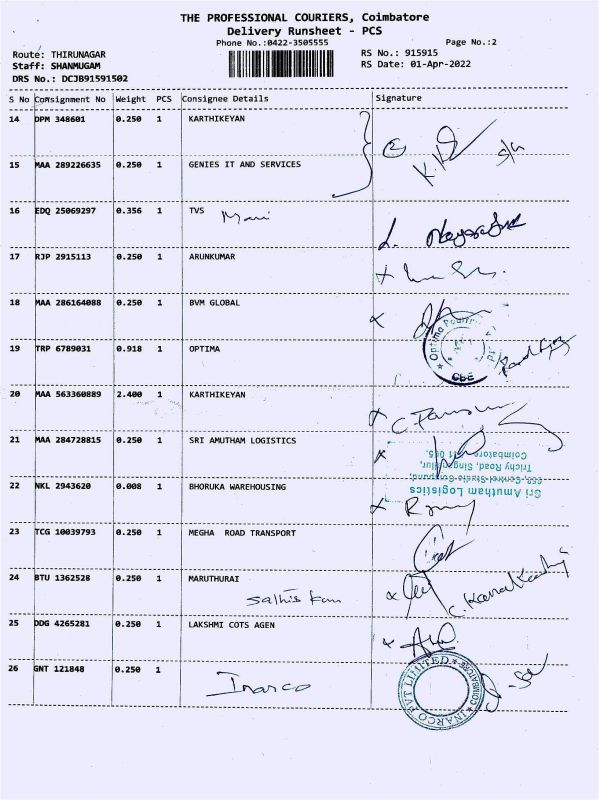 THE PROFESSIONAL COURIERS, Coimbatore
Delivery Runsheet - PCS
Phone No.:0422-3505555 Page No.:2
Route: THIRUNAGAR RS No.: 915915
Staff: SHANMUGAM RS Date: 01-Apr-2022
DRS No.: DCJB91591502
S No Consignment No Weight PCS Consignee Details Signature
14 DPM 348601 0.250 1 KARTHIKEYAN
15 MAA 289226635 0.250 1 GENIES IT AND SERVICES
16 EDQ 25069297 0.356 1 TVS Mani
17 RJP 2915113 0.250 1 ARUNKUMAR
18 MAA 286164088 0.250 1 BVM GLOBAL
19 TRP 6789031 0.918 1 OPTIMA
Optima
CBE
20 MAA 563360889 2.400 1 KARTHIKEYAN
21 MAA 284728815 0.250 1 SRI AMUTHAM LOGISTICS
Sri Amutham Logistics
Trichy Road, Singanallur,
Coimbatore
22 NKL 2943620 0.008 1 BHORUKA WAREHOUSING
23 TCG 10039793 0.250 1 MEGHA ROAD TRANSPORT
24 BTU 1362528 0.250 1 MARUTHURAI
25 DDG 4265281 0.250 1 LAKSHMI COTS AGEN
26 GNT 121848 0.250 1 Inarco
INARCO PVT LIMITED COIMBATORE